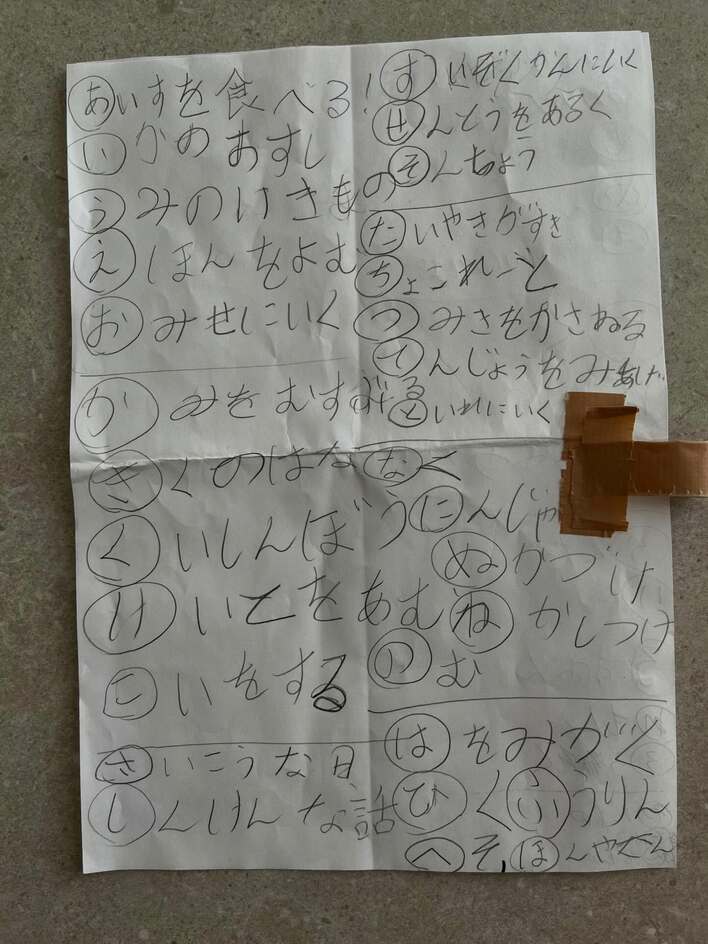 あいすを食べる!
いかのおすし
うみのいきもの
えほんをよむ
おみせにいく
かみをむすぶ
きくのはな
くいしんぼう
けいとをあむ
こいをする
さいこうな日
しんけんな話
すいぞくかんにいく
せんとうをあるく
そんちょう
たいやきがすき
ちょこれーと
つみきをかさねる
てんじょうをみあげる
といれにいく
なく
にんじゃ
ぬかづけ
ねかしつけ
のむ
はをみがく
ひく ふうりん
へそ、ほんやさん